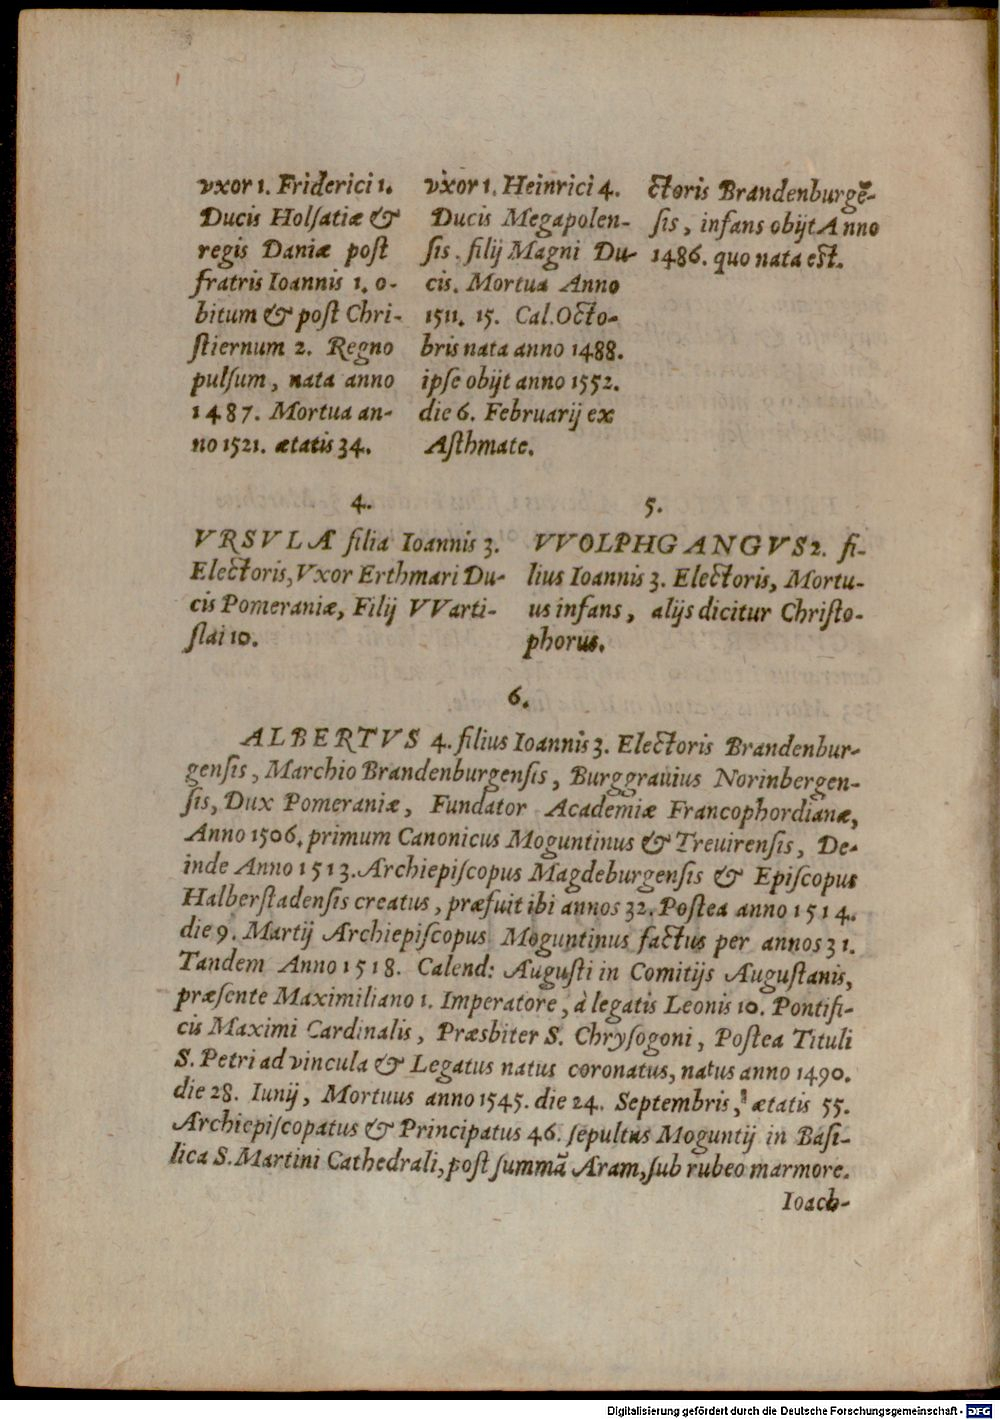 vxor 1. Friderici 1.
Ducis Holſatiæ &
regis Daniæ poſt
fratris Ioannis 1. o-
bitum & poſt Chri-
ſtiernum 2. Regno
pulſum, nata anno
1487. Mortua an-
no 1521. ætatis 34.
vxor 1. Heinrici 4.
Ducis Megapolen-
ſis. filij Magni Du-
cis. Mortua Anno
1511. 15. Cal. Octo-
bris nata anno 1488.
ipſe obijt anno 1552.
die 6. Februarij ex
Aſthmate.
ctoris Brandenburgē-
ſis, infans obijt Anno
1486. quo nata eſt.
4.
VRSVLÆ filia Ioannis 3.
Electoris, Vxor Erthmari Du-
cis Pomeraniæ, Filij VVarti-
ſlai 10.
5.
VVOLPHGANGVS 2. fi-
lius Ioannis 3. Electoris, Mortu-
us infans, alijs dicitur Chriſto-
phorus.
6.
ALBERTVS 4. filius Ioannis 3. Electoris Brandenbur-
genſis, Marchio Brandenburgenſis, Burggrauius Norinbergen-
ſis, Dux Pomeraniæ, Fundator Academiæ Francophordianæ,
Anno 1506. primum Canonicus Moguntinus & Treuirenſis, De-
inde Anno 1513. Archiepiſcopus Magdeburgenſis & Epiſcopus
Halberſtadenſis creatus, præfuit ibi annos 32. Poſtea anno 1514.
die 9. Martij Archiepiſcopus Moguntinus factus per annos 31.
Tandem Anno 1518. Calend: Auguſti in Comitijs Auguſtanis,
præſente Maximiliano 1. Imperatore, à legatis Leonis 10. Pontifi-
cis Maximi Cardinalis, Præsbiter S. Chryſogoni, Poſtea Tituli
S. Petri ad vincula & Legatus natus coronatus, natus anno 1490.
die 28. Iunij, Mortuus anno 1545. die 24. Septembris, ætatis 55.
Archiepiſcopatus & Principatus 46. ſepultus Moguntij in Baſi-
lica S. Martini Cathedrali, poſt ſummā Aram, ſub rubeo marmore.
Ioach-
Digitalisierung gefördert durch die Deutsche Forschungsgemeinschaft - DFG